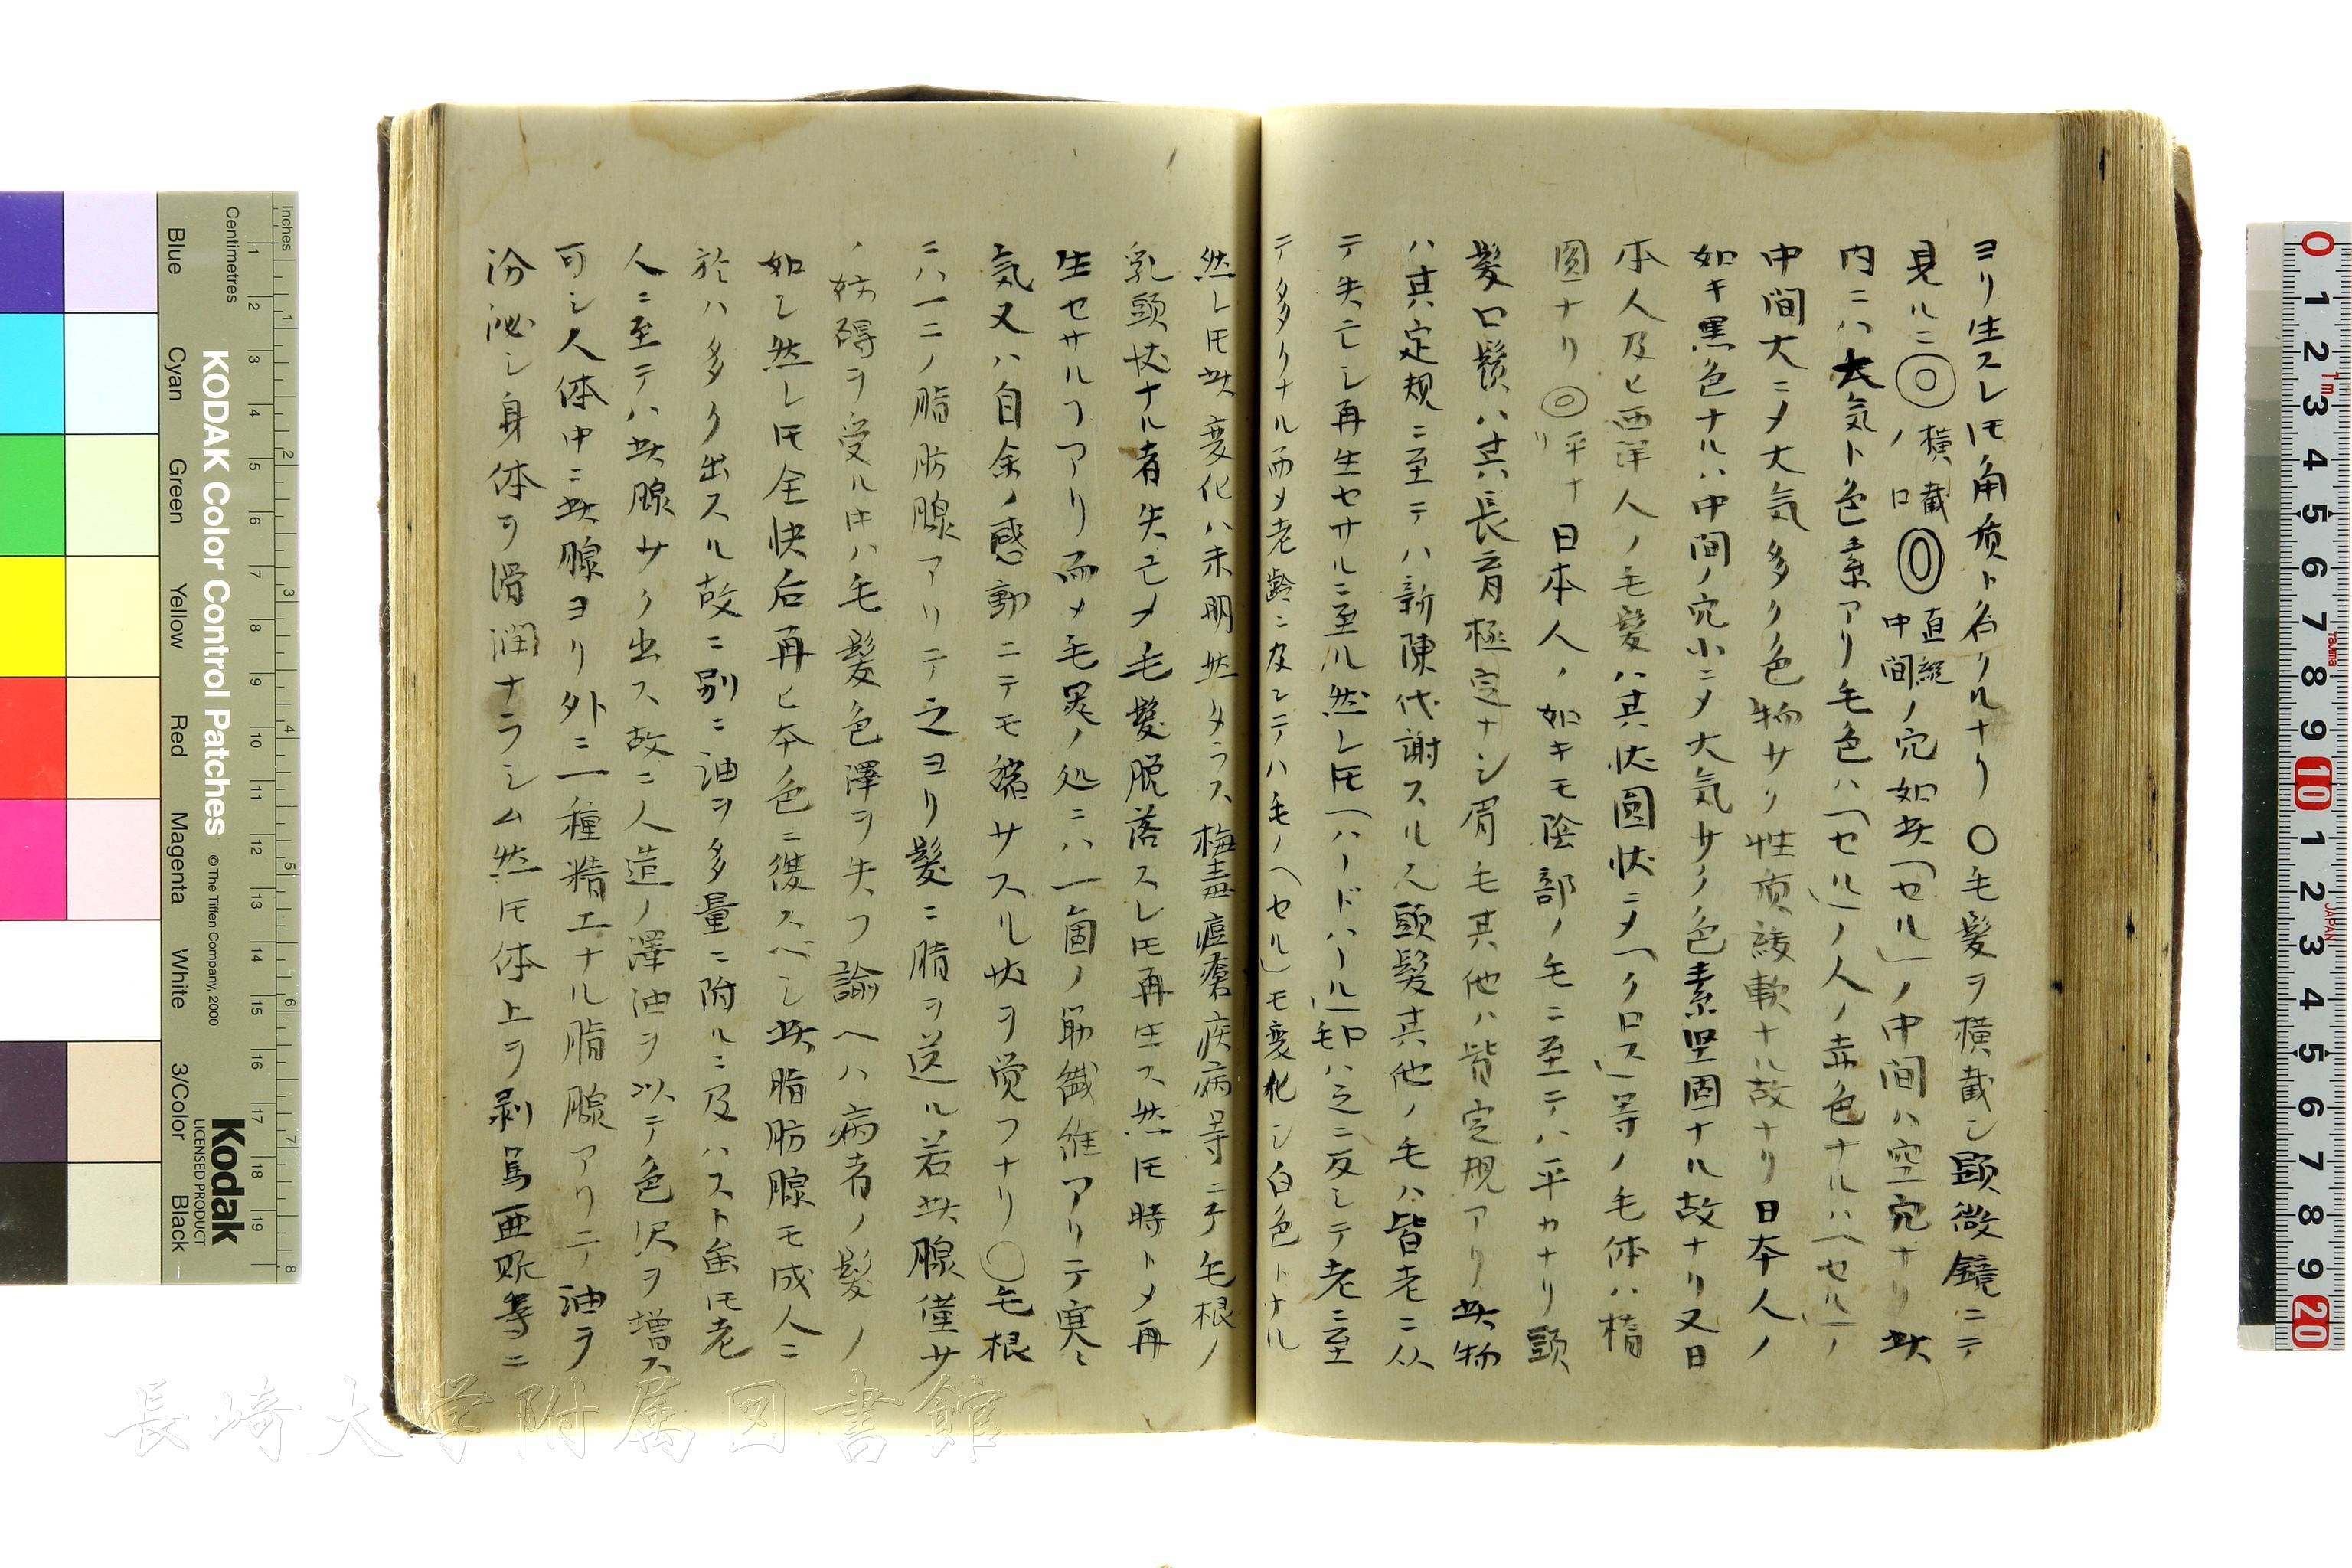 ヨリ生スレ𪜈角質ト名クルナリ ○毛髪ヲ横截シ顕微鏡ニテ
見ルニ◎横截ノ口◎直縦中間ノ穴如此「セル」ノ中間ハ空穴ナリ此
内ニハ大気ト色素アリ毛色ハ「セル」ノ人ノ赤色ナルハ「セル」ノ
中間大ニ〆大気多ク色物サク性質緩軟ナル故ナリ日本人ノ
如キ黒色ナルハ中間ノ穴小ニ〆大気サク色素堅固ナル故ナリ又日
本人及ヒ西洋人ノ毛髪ハ其状圓状ニ〆「クロス」等ノ毛体ハ楕
圓ナリ◎平ナリ日本人ノ如キモ陰部ノ毛ニ至テハ平カナリ頭
髪口鬚ハ其長育極定ナシ眉毛其他ハ皆定規アリ此物
ハ其定規ニ至テハ新陳代謝スル也頭髪其他ノ毛ハ皆老ニ从
テ失亡シ再生セサルニ至ル然レ𪜈「ハードハール」毛ハ之ニ反シテ老ニ至
テ多クナル而〆老齢ニ及シテハ毛ノ「セル」モ変化シ白色トナル
然レ𪜈此変化ハ未明然タラス梅毒痘瘡疾病等ニテ毛根ノ
乳頭状ナル者失亡〆毛髪脱落スレ𪜈再生ス然𪜈時ト〆再
生セサルヿアリ而〆毛嚢ノ処ニハ一箇ノ筋繊維アリテ寒
気又ハ自余ノ感動ニテモ縮サスル状ヲ覚フナリ○毛根
ニハ一二ノ脂肪腺アリテ之ヨリ髪ニ脂ヲ送ル若此腺僅サ
ノ妨碍ヲ受ル中ハ毛髪色澤ヲ失フ諭ヘハ病者ノ髪ノ
如シ然レ𪜈全快后再ヒ本色ニ復スベシ此脂肪腺モ成人ニ
於ハ多ク出スル故ニ別ニ油ヲ多量ニ附ルニ及ハスト雖𪜈老
人ニ至テハ此腺サク出ス故ニ人造ノ澤油ヲ以テ色沢ヲ増ス
可シ人体中ニ此腺ヨリ外ニ一種精工ナル脂腺アリテ油ヲ
分泌シ身体ヲ滑潤ナラシム然𪜈体上ヲ剥篤亜等ニ
KODAK Color Control Patches
© The Tiffen Company, 2000
Kodak
LICENSED PRODUCT
Inches
Centimetres
Blue Cyan Green Yellow Red Magenta White 3/Color Black
1 2 3 4 5 6 7 8 9 10 11 12 13 14 15 16 17 18 19
1 2 3 4 5 6 7 8
0 1 2 3 4 5 6 7 8 9 10 1 2 3 4 5 6 7 8 9 20
1m
Tajima
JAPAN
長崎大学附属図書館